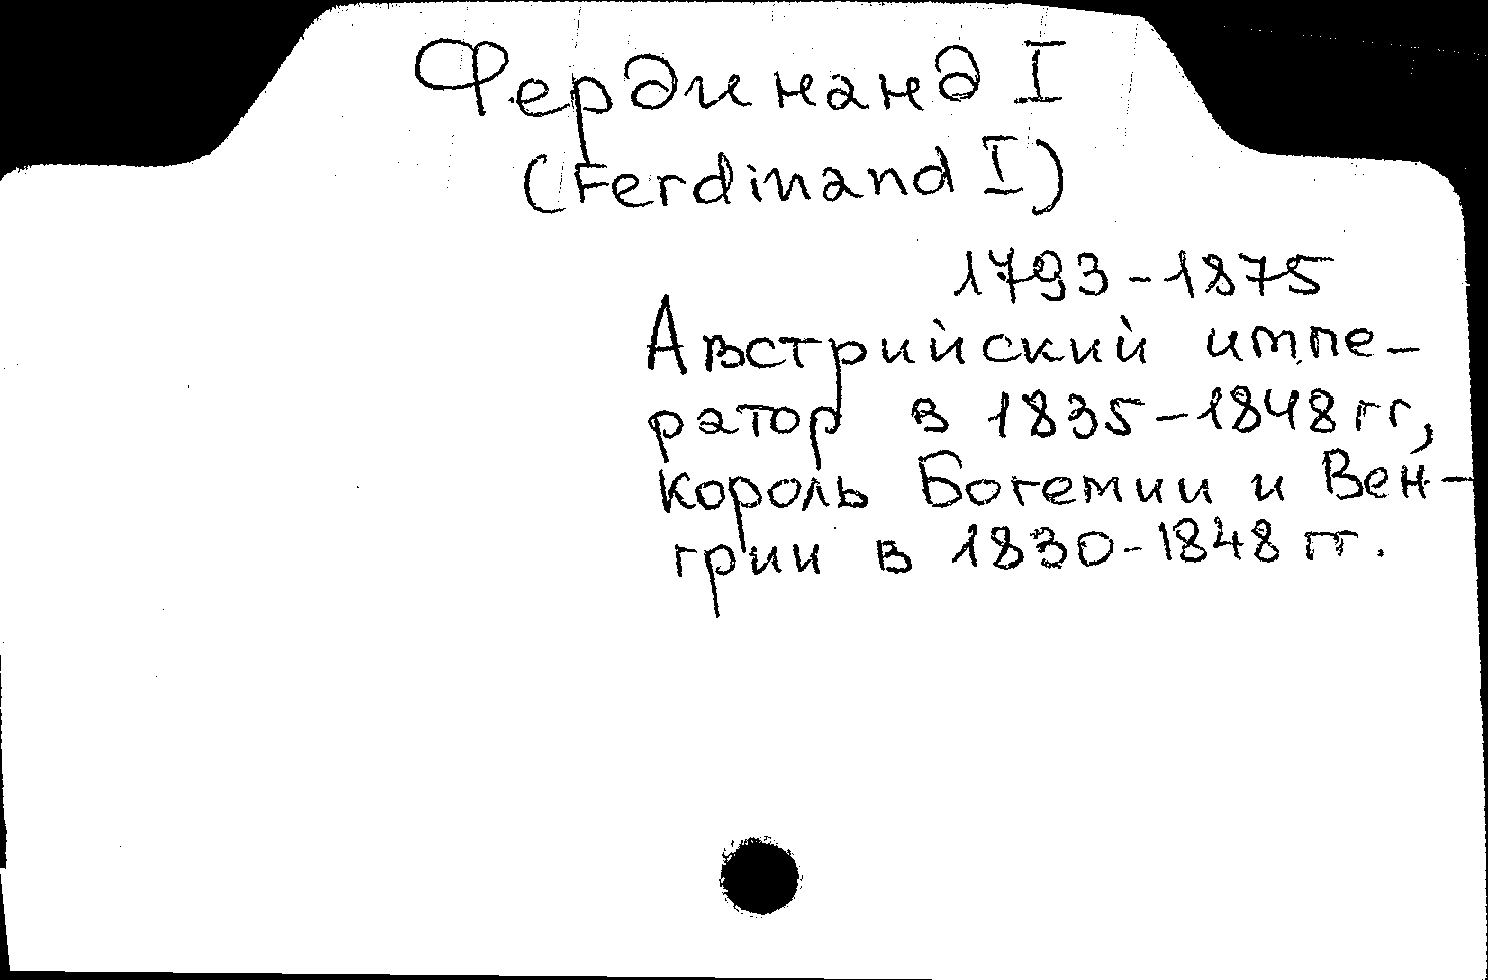 Фердинанд I
(Ferdinand I)
1793-1875
Австрийский импе-
ратор в 1835-1848 гг,
король Богемии и Вен-
грии в 1830-1848 гг.